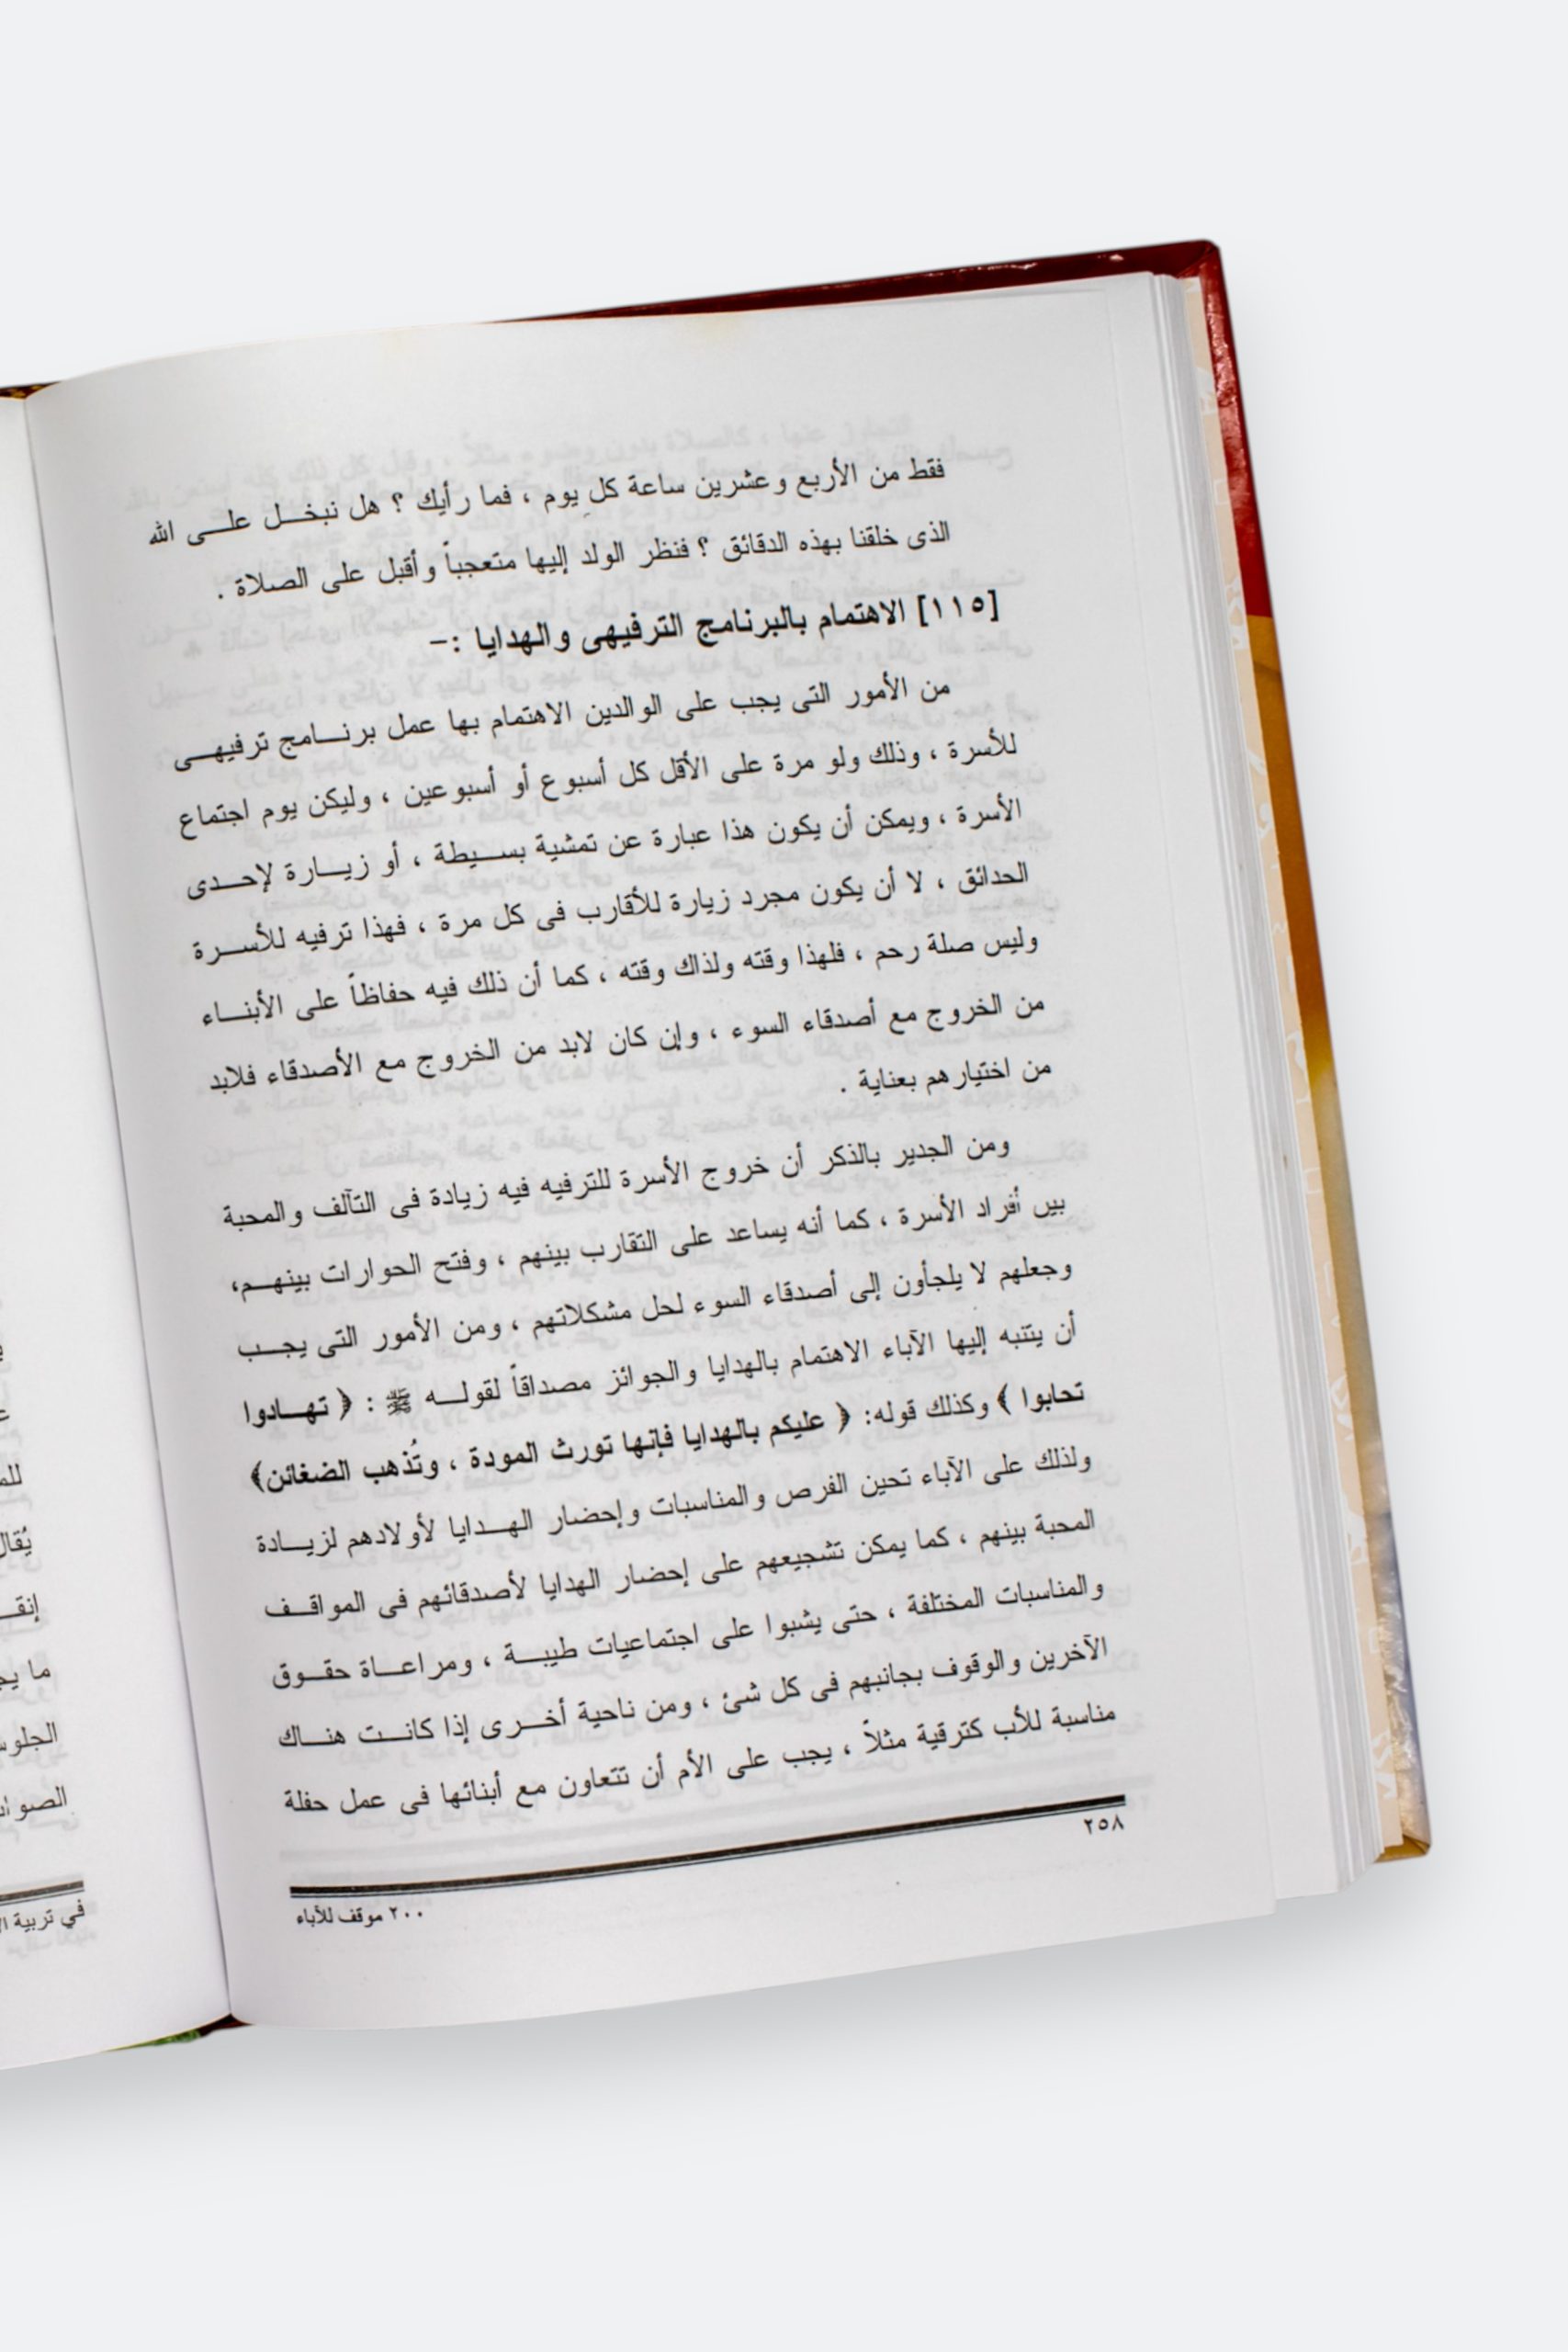 فقط من الأربع وعشرين ساعة كل يوم ، فما رأيك ؟ هل نبخـــل علـــى الله
الذى خلقنا بهذه الدقائق ؟ فنظر الولد إليها متعجباً وأقبل على الصلاة .
[١١٥] الاهتمام بالبرنامج الترفيهى والهدايا :-
من الأمور التى يجب على الوالدين الاهتمام بها عمل برنـــامج ترفيهـــى
للأسرة ، وذلك ولو مرة على الأقل كل أسبوع أو أسبوعين ، وليكن يوم اجتماع
الأسرة ، ويمكن أن يكون هذا عبارة عن تمشية بســـيطة ، أو زيـــارة لإحـــدى
الحدائق ، لا أن يكون مجرد زيارة للأقارب فى كل مرة ، فهذا ترفيه للأســـرة
وليس صلة رحم ، فلهذا وقته ولذاك وقته ، كما أن ذلك فيه حفاظاً على الأبنـــاء
من الخروج مع أصدقاء السوء ، وإن كان لابد من الخروج مع الأصدقاء فلابد
من اختيارهم بعناية .
ومن الجدير بالذكر أن خروج الأسرة للترفيه فيه زيادة فى التآلف والمحبة
بين أفراد الأسرة ، كما أنه يساعد على التقارب بينهم ، وفتح الحوارات بينهـــم،
وجعلهم لا يلجأون إلى أصدقاء السوء لحل مشكلاتهم ، ومن الأمور التى يجـــب
أن يتنبه إليها الآباء الاهتمام بالهدايا والجوائز مصداقاً لقولـــه ﷺ : ﴿ تهـــادوا
تحابوا ﴾ وكذلك قوله: ﴿ عليكم بالهدايا فإنها تورث المودة ، وتُذهب الضغائن﴾
ولذلك على الآباء تحين الفرص والمناسبات وإحضار الهـــدايا لأولادهم لزيـــادة
المحبة بينهم ، كما يمكن تشجيعهم على إحضار الهدايا لأصدقائهم فى المواقـــف
والمناسبات المختلفة ، حتى يشبوا على اجتماعيات طيبـــة ، ومراعـــاة حقـــوق
الآخرين والوقوف بجانبهم فى كل شئ ، ومن ناحية أخـــرى إذا كانـــت هنـــاك
مناسبة للأب كترقية مثلاً ، يجب على الأم أن تتعاون مع أبنائها فى عمل حفلة
٢٥٨
٢٠٠ موقف للآباء
يُقال
ما يج
في تربية